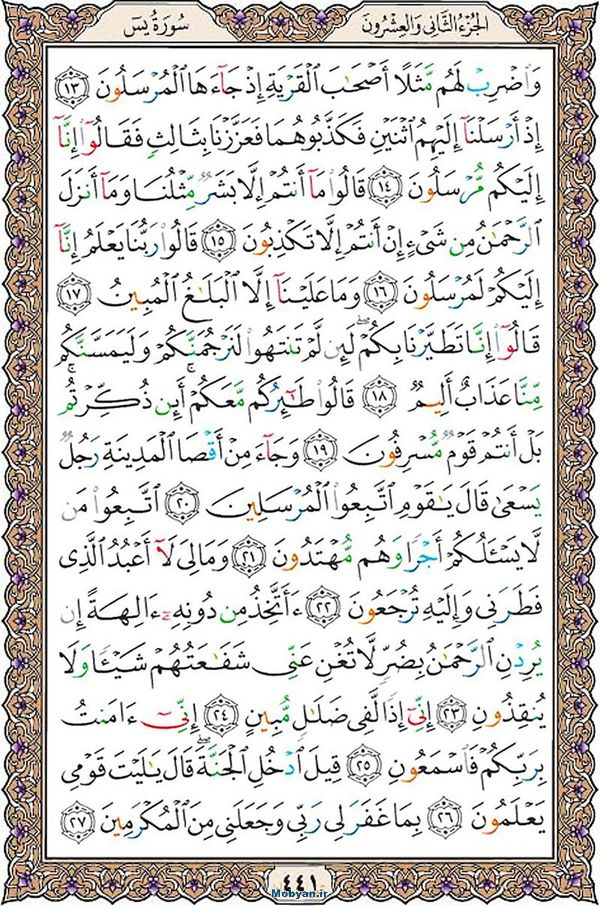 الجُزءُ الثَّانِی وَالعِشرُونَ
سُورَةُ یٰسٓ
وَٱضۡرِبۡ لَهُم مَّثَلًا أَصۡحَٰبَ ٱلۡقَرۡيَةِ إِذۡ جَآءَهَا ٱلۡمُرۡسَلُونَ ١٣
إِذۡ أَرۡسَلۡنَآ إِلَيۡهِمُ ٱثۡنَيۡنِ فَكَذَّبُوهُمَا فَعَزَّزۡنَا بِثَالِثٖ فَقَالُوٓاْ إِنَّآ
إِلَيۡكُم مُّرۡسَلُونَ ١٤ قَالُواْ مَآ أَنتُمۡ إِلَّا بَشَرٞ مِّثۡلُنَا وَمَآ أَنزَلَ
ٱلرَّحۡمَٰنُ مِن شَيۡءٍ إِنۡ أَنتُمۡ إِلَّا تَكۡذِبُونَ ١٥ قَالُواْ رَبُّنَا يَعۡلَمُ إِنَّآ
إِلَيۡكُمۡ لَمُرۡسَلُونَ ١٦ وَمَا عَلَيۡنَآ إِلَّا ٱلۡبَلَٰغُ ٱلۡمُبِينُ ١٧
قَالُوٓاْ إِنَّا تَطَيَّرۡنَا بِكُمۡۖ لَئِن لَّمۡ تَنتَهُواْ لَنَرۡجُمَنَّكُمۡ وَلَيَمَسَّنَّكُم
مِّنَّا عَذَابٌ أَلِيمٞ ١٨ قَالُواْ طَٰٓئِرُكُم مَّعَكُمۡ أَئِن ذُكِّرۡتُمۚ
بَلۡ أَنتُمۡ قَوۡمٞ مُّسۡرِفُونَ ١٩ وَجَآءَ مِنۡ أَقۡصَا ٱلۡمَدِينَةِ رَجُلٞ
يَسۡعَىٰ قَالَ يَٰقَوۡمِ ٱتَّبِعُواْ ٱلۡمُرۡسَلِينَ ٢٠ ٱتَّبِعُواْ مَن
لَّا يَسۡـَٔلُكُمۡ أَجۡرٗا وَهُم مُّهۡتَدُونَ ٢١ وَمَالِيَ لَآ أَعۡبُدُ ٱلَّذِي
فَطَرَنِي وَإِلَيۡهِ تُرۡجَعُونَ ٢٢ ءَأَتَّخِذُ مِن دُونِهِۦٓ ءَالِهَةً إِن
يُرِدۡنِ ٱلرَّحۡمَٰنُ بِضُرّٖ لَّا تُغۡنِ عَنِّي شَفَٰعَتُهُمۡ شَيۡـٔٗا وَلَا
يُنقِذُونِ ٢٣ إِنِّيٓ إِذٗا لَّفِي ضَلَٰلٖ مُّبِينٍ ٢٤ إِنِّيٓ ءَامَنتُ
بِرَبِّكُمۡ فَٱسۡمَعُونِ ٢٥ قِيلَ ٱدۡخُلِ ٱلۡجَنَّةَۖ قَالَ يَٰلَيۡتَ قَوۡمِي
يَعۡلَمُونَ ٢٦ بِمَا غَفَرَ لِي رَبِّي وَجَعَلَنِي مِنَ ٱلۡمُكۡرَمِينَ ٢٧
٤٤١
Mobyan.ir